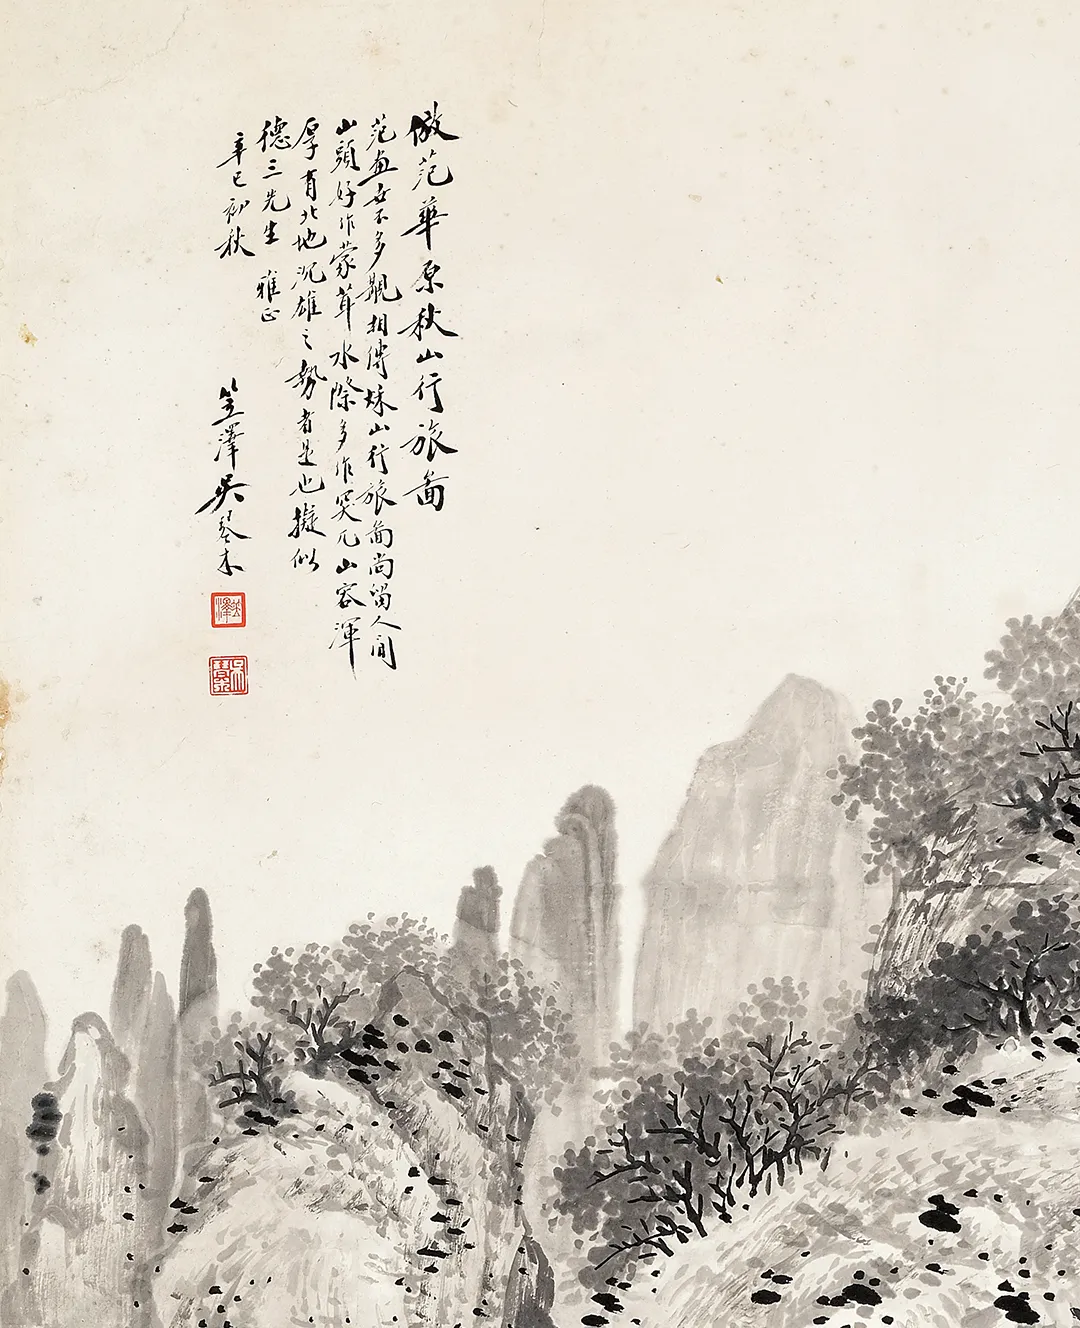 倣范華原秋山行旅啚
范畫世不多觀相傳姝山行旅啚尚留人间
山頭好作蒙茸水際多作突兀山容渾
厚有北地沉雄之勢者是也擬似
德三先生 雅正
辛巳初秋
笠澤吳琴木